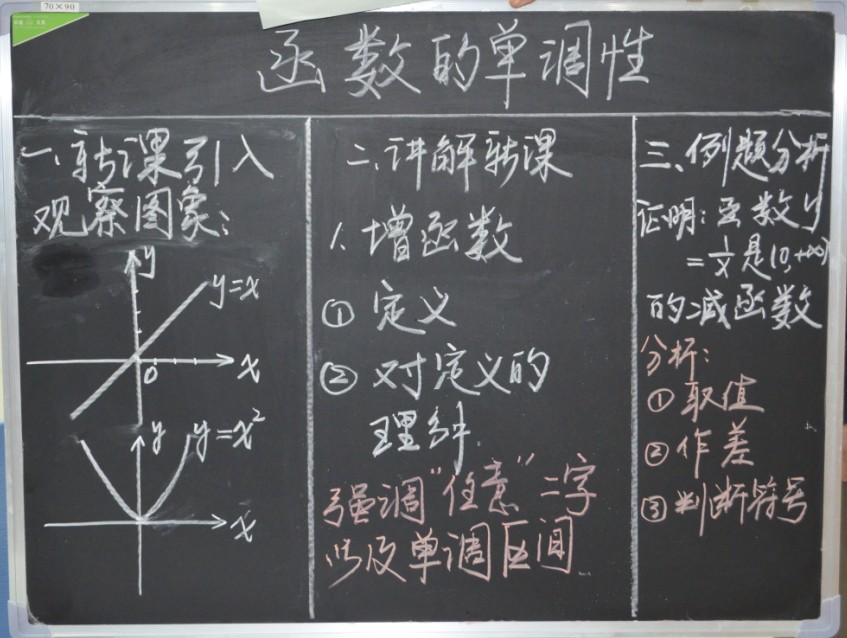 70×90
函数的单调性
一、新课引入
观察图象:
y
y=x
0
x
y
y=x²
x
二、讲解新课
1. 增函数
① 定义
② 对定义的
理解.
强调"任意"二字
以及单调区间
三、例题分析
证明: 函数y
=1/x是(0,+∞)
的减函数
分析:
① 取值
② 作差
③ 判断符号